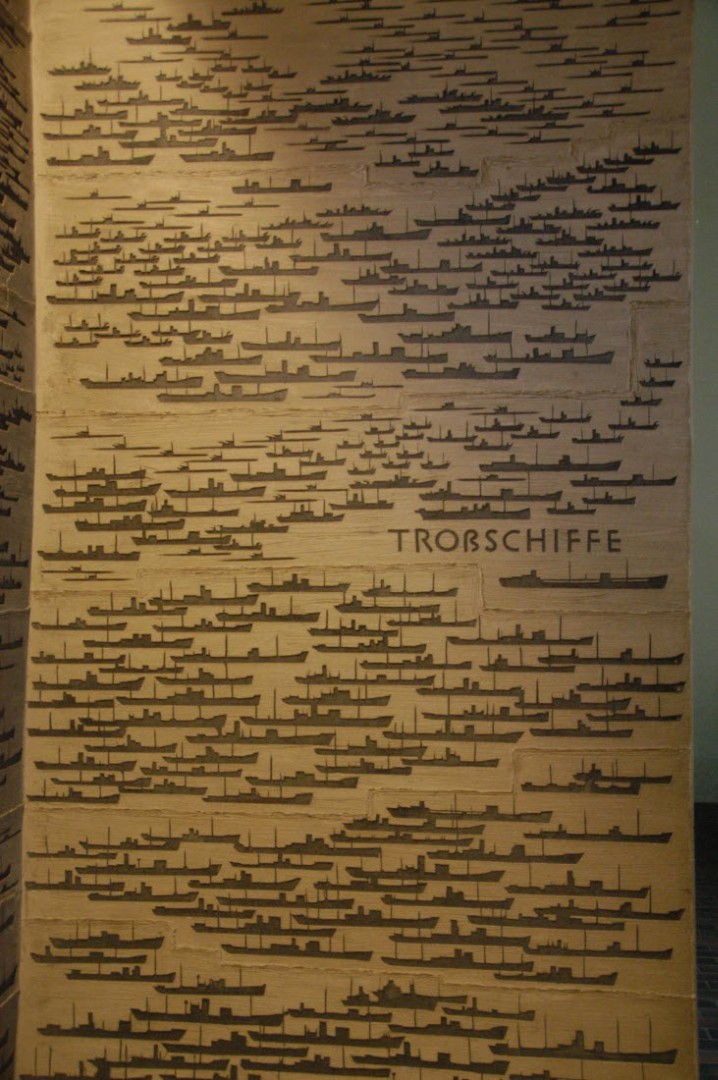 TROßSCHIFFE